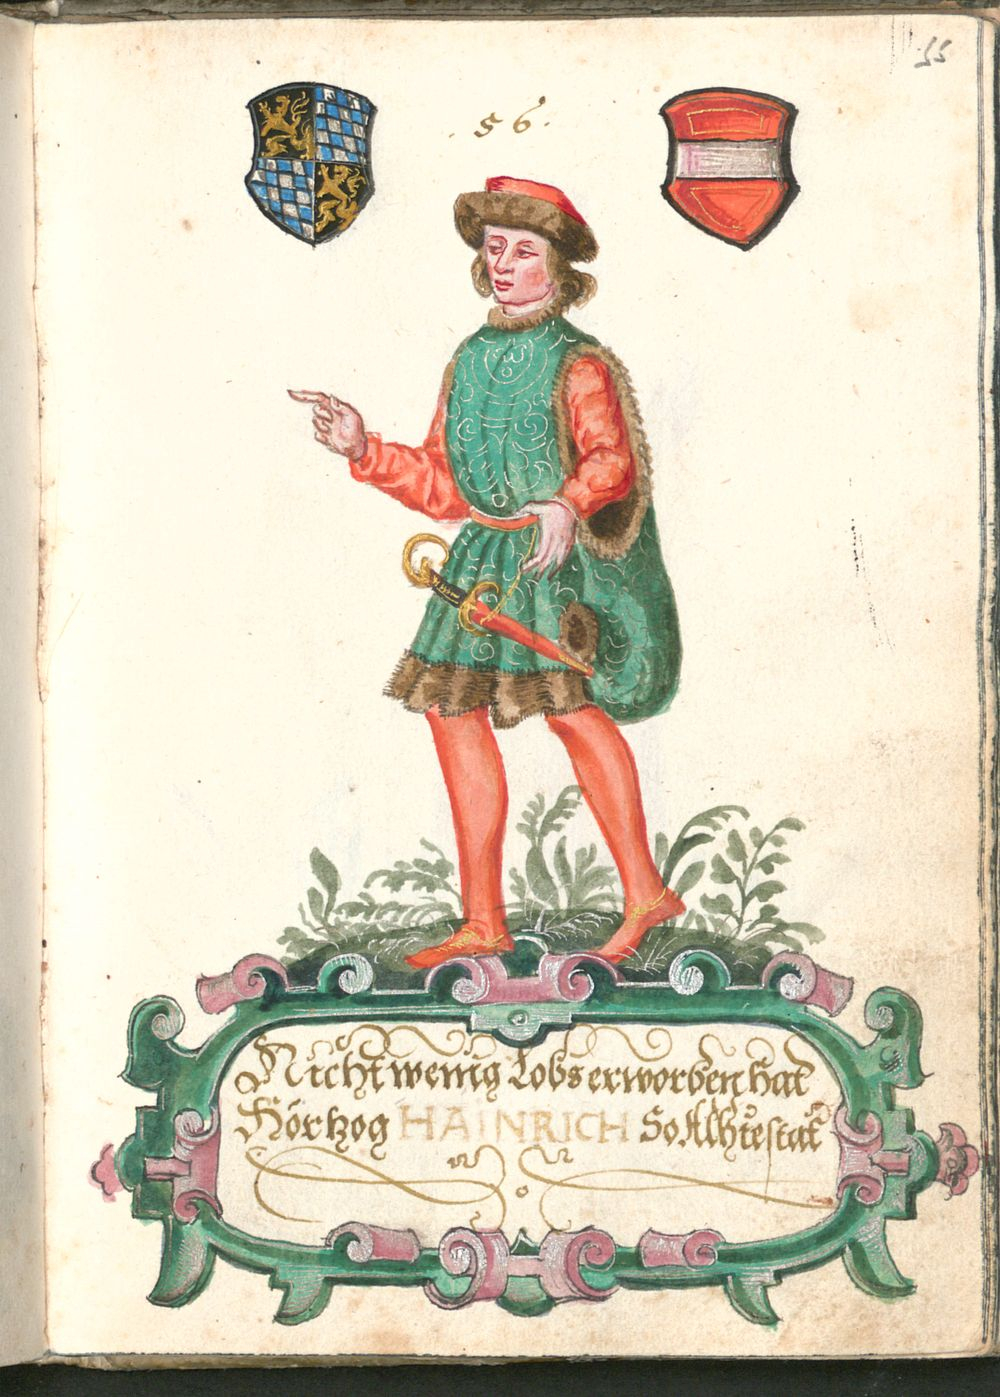 55
. 56 .
Nicht wenig Lobs erworben hat
Hörtzog HAINRICH So Alhie stat